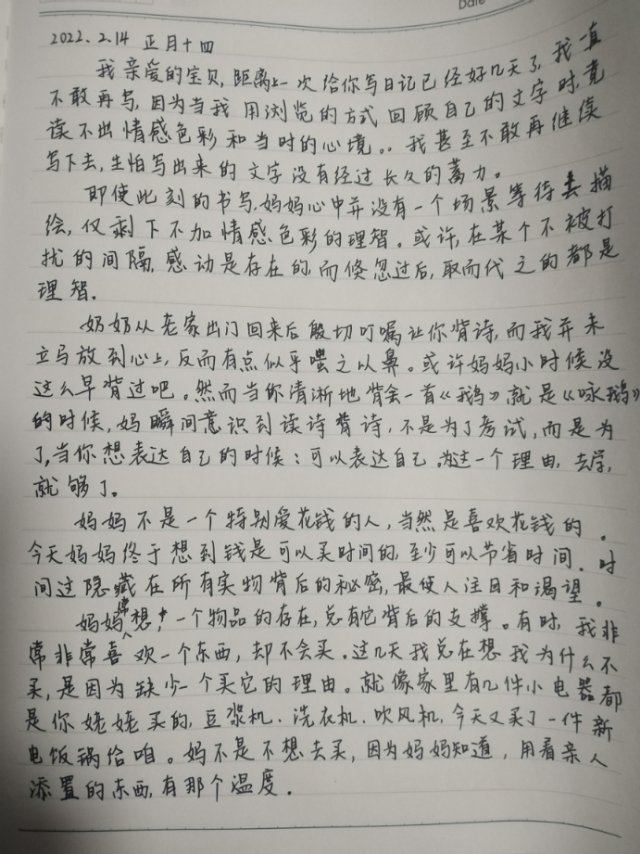 Date
2022.2.14 正月十四
我亲爱的宝贝,距离上一次给你写日记已经好几天了,我一直
不敢再写,因为当我用浏览的方式回顾自己的文字时,竟
读不出情感色彩和当时的心境。.我甚至不敢再继续
写下去,生怕写出来的文字没有经过长久的蓄力。
即使此刻的书写,妈妈心中并没有一个场景等待去描
绘,仅剩下不加情感色彩的理智。或许,在某个不被打
扰的间隔,感动是存在的,而倏忽过后,取而代之的都是
理智.
奶奶从老家出门回来后殷切叮嘱让你背诗,而我并未
立马放到心上,反而有点似乎嗤之以鼻。或许妈妈小时候没
这么早背过吧。然而当你清淅地背会一首《鹅》就是《咏鹅》
的时候,妈瞬间意识到读诗背诗,不是为了考试,而是为
了,当你想表达自己的时候:可以表达自己.为这一个理由,去学,
就够了。
妈妈不是一个特别爱花钱的人,当然是喜欢花钱的。
今天妈妈终于想到钱是可以买时间的,至少可以节省时间.时
间过隐藏在所有实物背后的秘密,最使人注目和渴望。
妈妈常想,一个物品的存在,总有它背后的支撑。有时,我非
常非常喜欢一个东西,却不会买.过几天我总在想我为什么不
买,是因为缺少一个买它的理由。就像家里有几件小电器都
是你姥姥买的,豆浆机.洗衣机.吹风机,今天又买了一件新
电饭锅给咱。妈不是不想去买,因为妈妈知道,用着亲人
添置的东西,有那个温度.